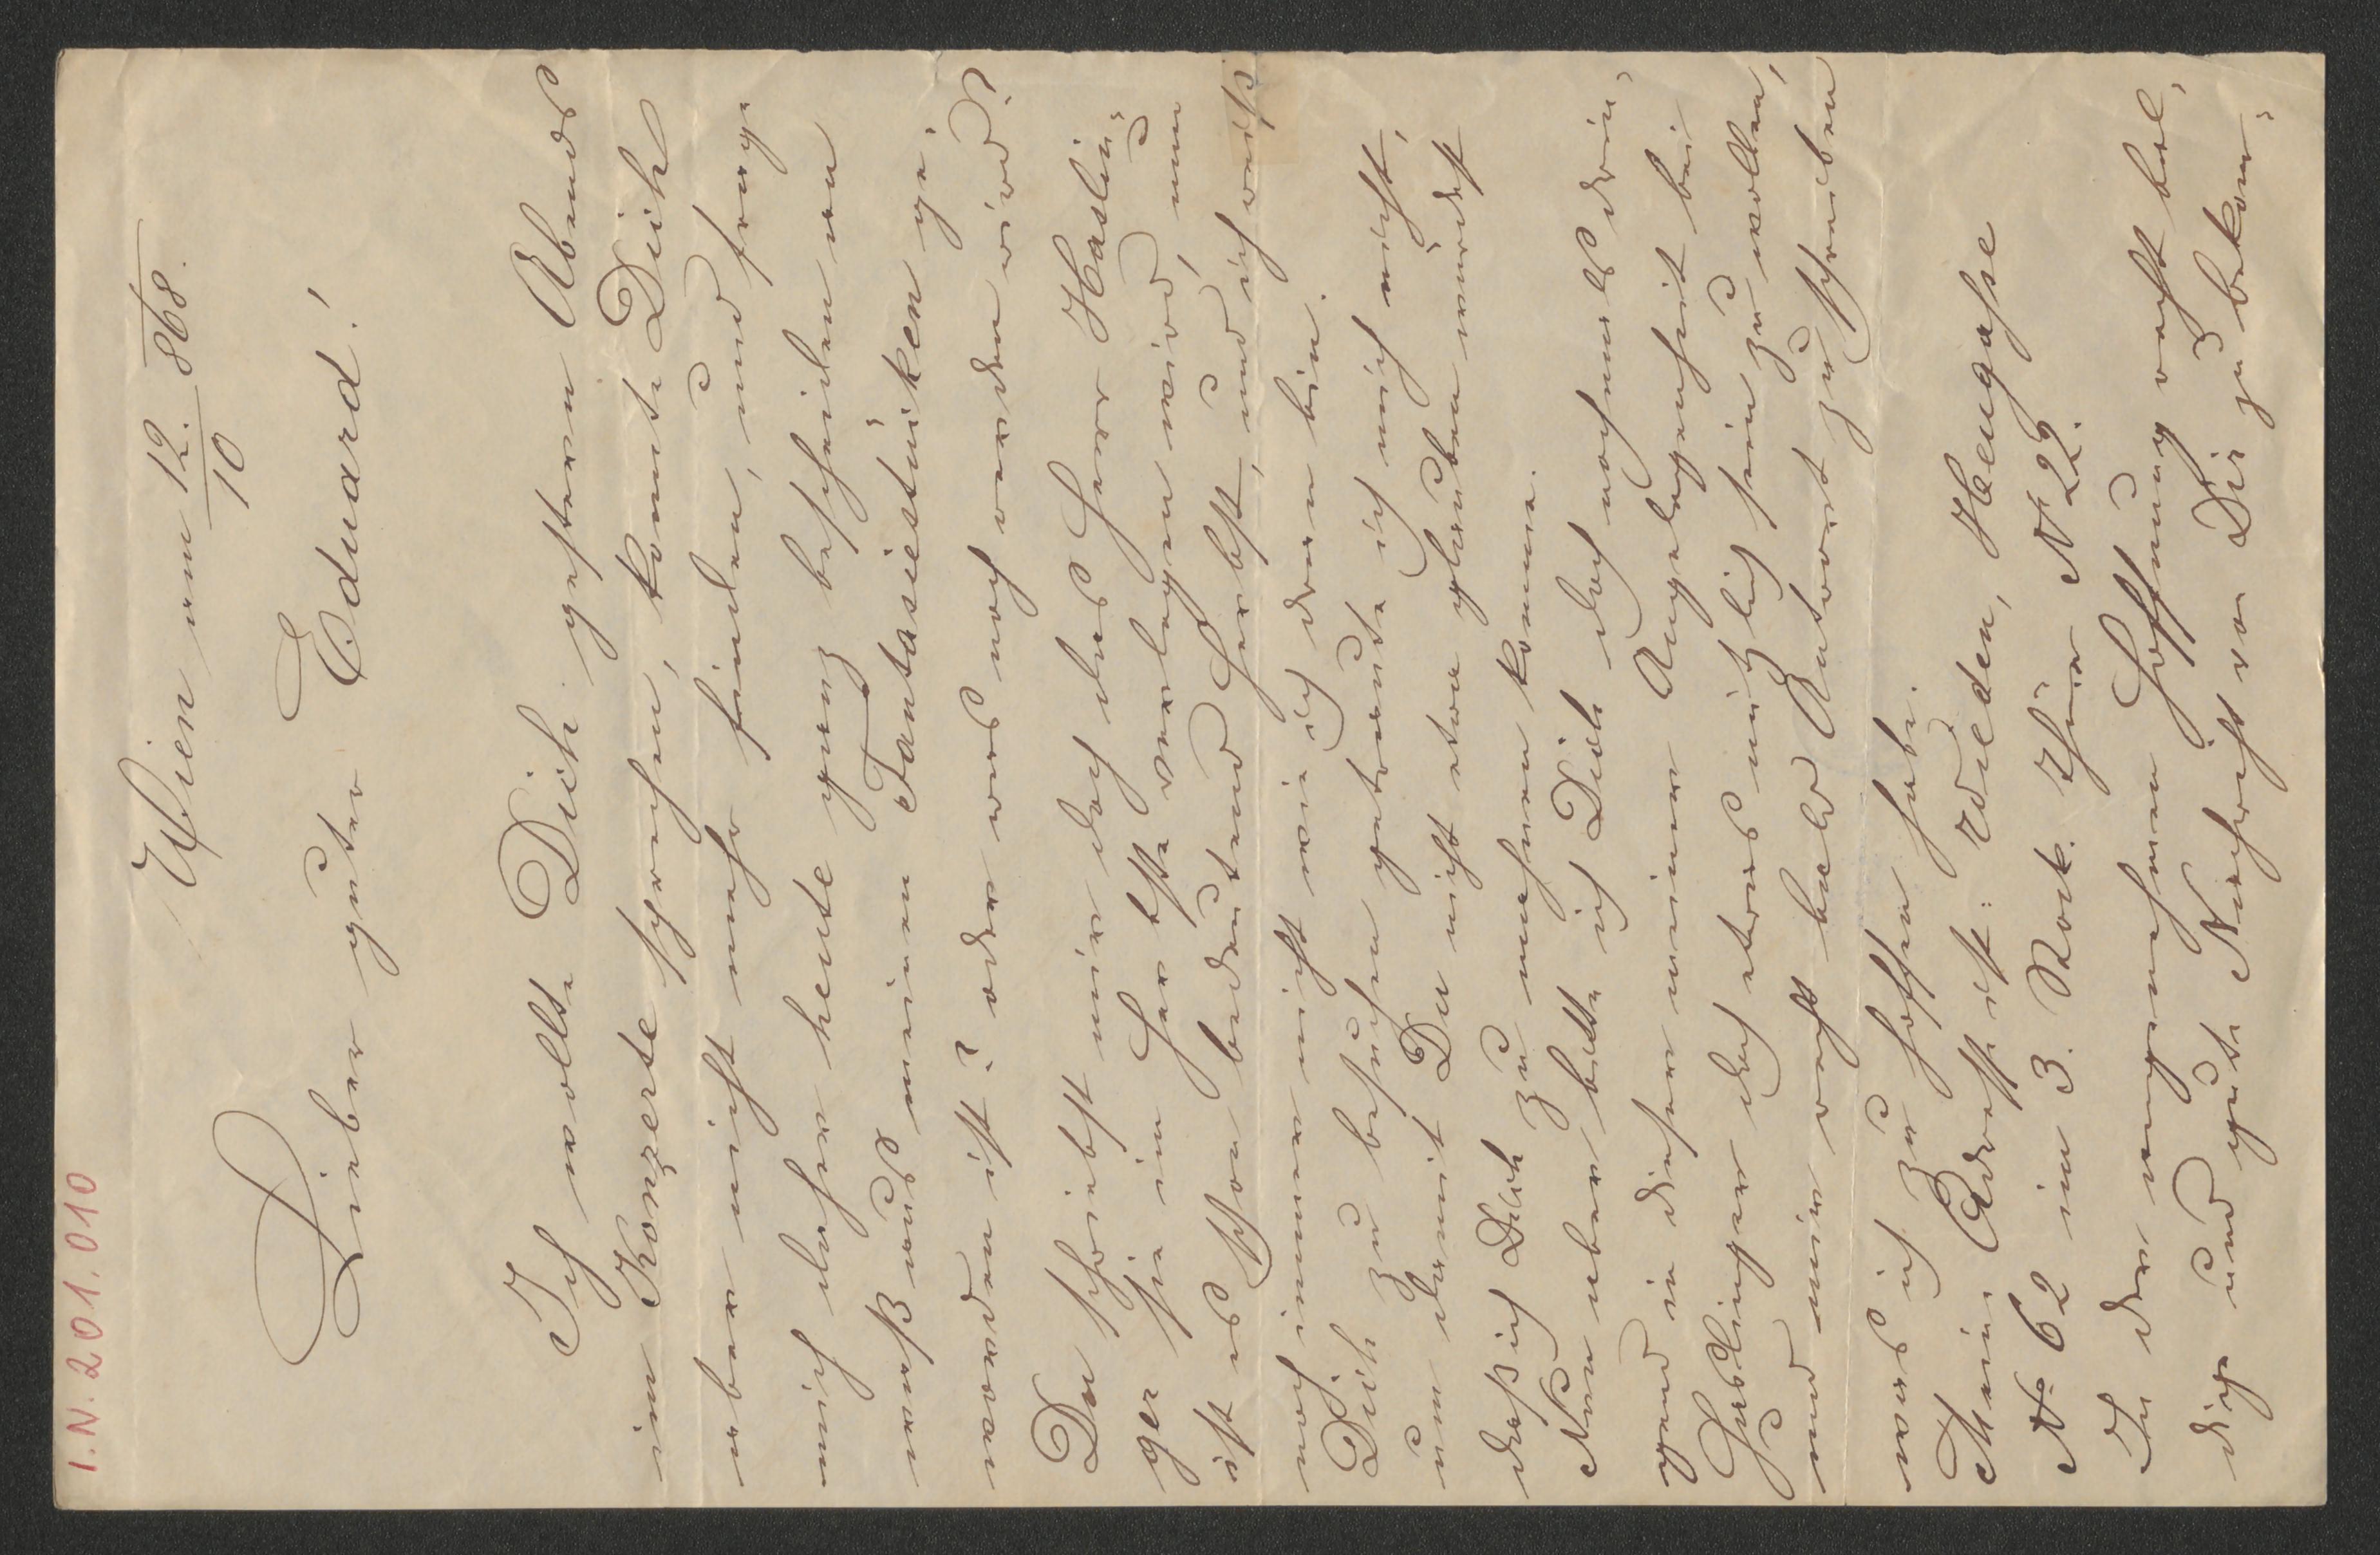 I.N. 201.010
Wien am 12./10 868.
Lieber guter Eduard!
Ich wollte Dich gestern Abends
im Konzerte sprechen, konnte Dich
aber nicht mehr finden, und frage
mich daher heute ganz bescheiden an
was aus meinen Fantasiestücken ge„
worden ist? oder was noch werden wird?
Du schriebst mir doch das Herr Haslin„
ger sie im Herbste verlegen wird, nun
ist es schon bedeutend Herbst, und ich weiß
noch immer nicht wie ich dran bin.
Dich zu besuchen getraute ich mich nicht,
um damit Du nicht etwa glauben würdest
daß ich Dich zu mahnen komme.
Nun aber bitte ich Dich doch nochmals drin„
gend in dieser meiner Angelegenheit bei
Haslinger doch etwas nützlich sein zu wollen,
und mir recht bald Antwort zu schreiben
was ich zu hoffen habe.
Meine Adresse ist: Wieden, Heugasse
№ 62 im 3. Stock Thür № 22.
In der angenehmen Hoffnung recht bal„
dige und gute Nachricht von Dir zu bekom„